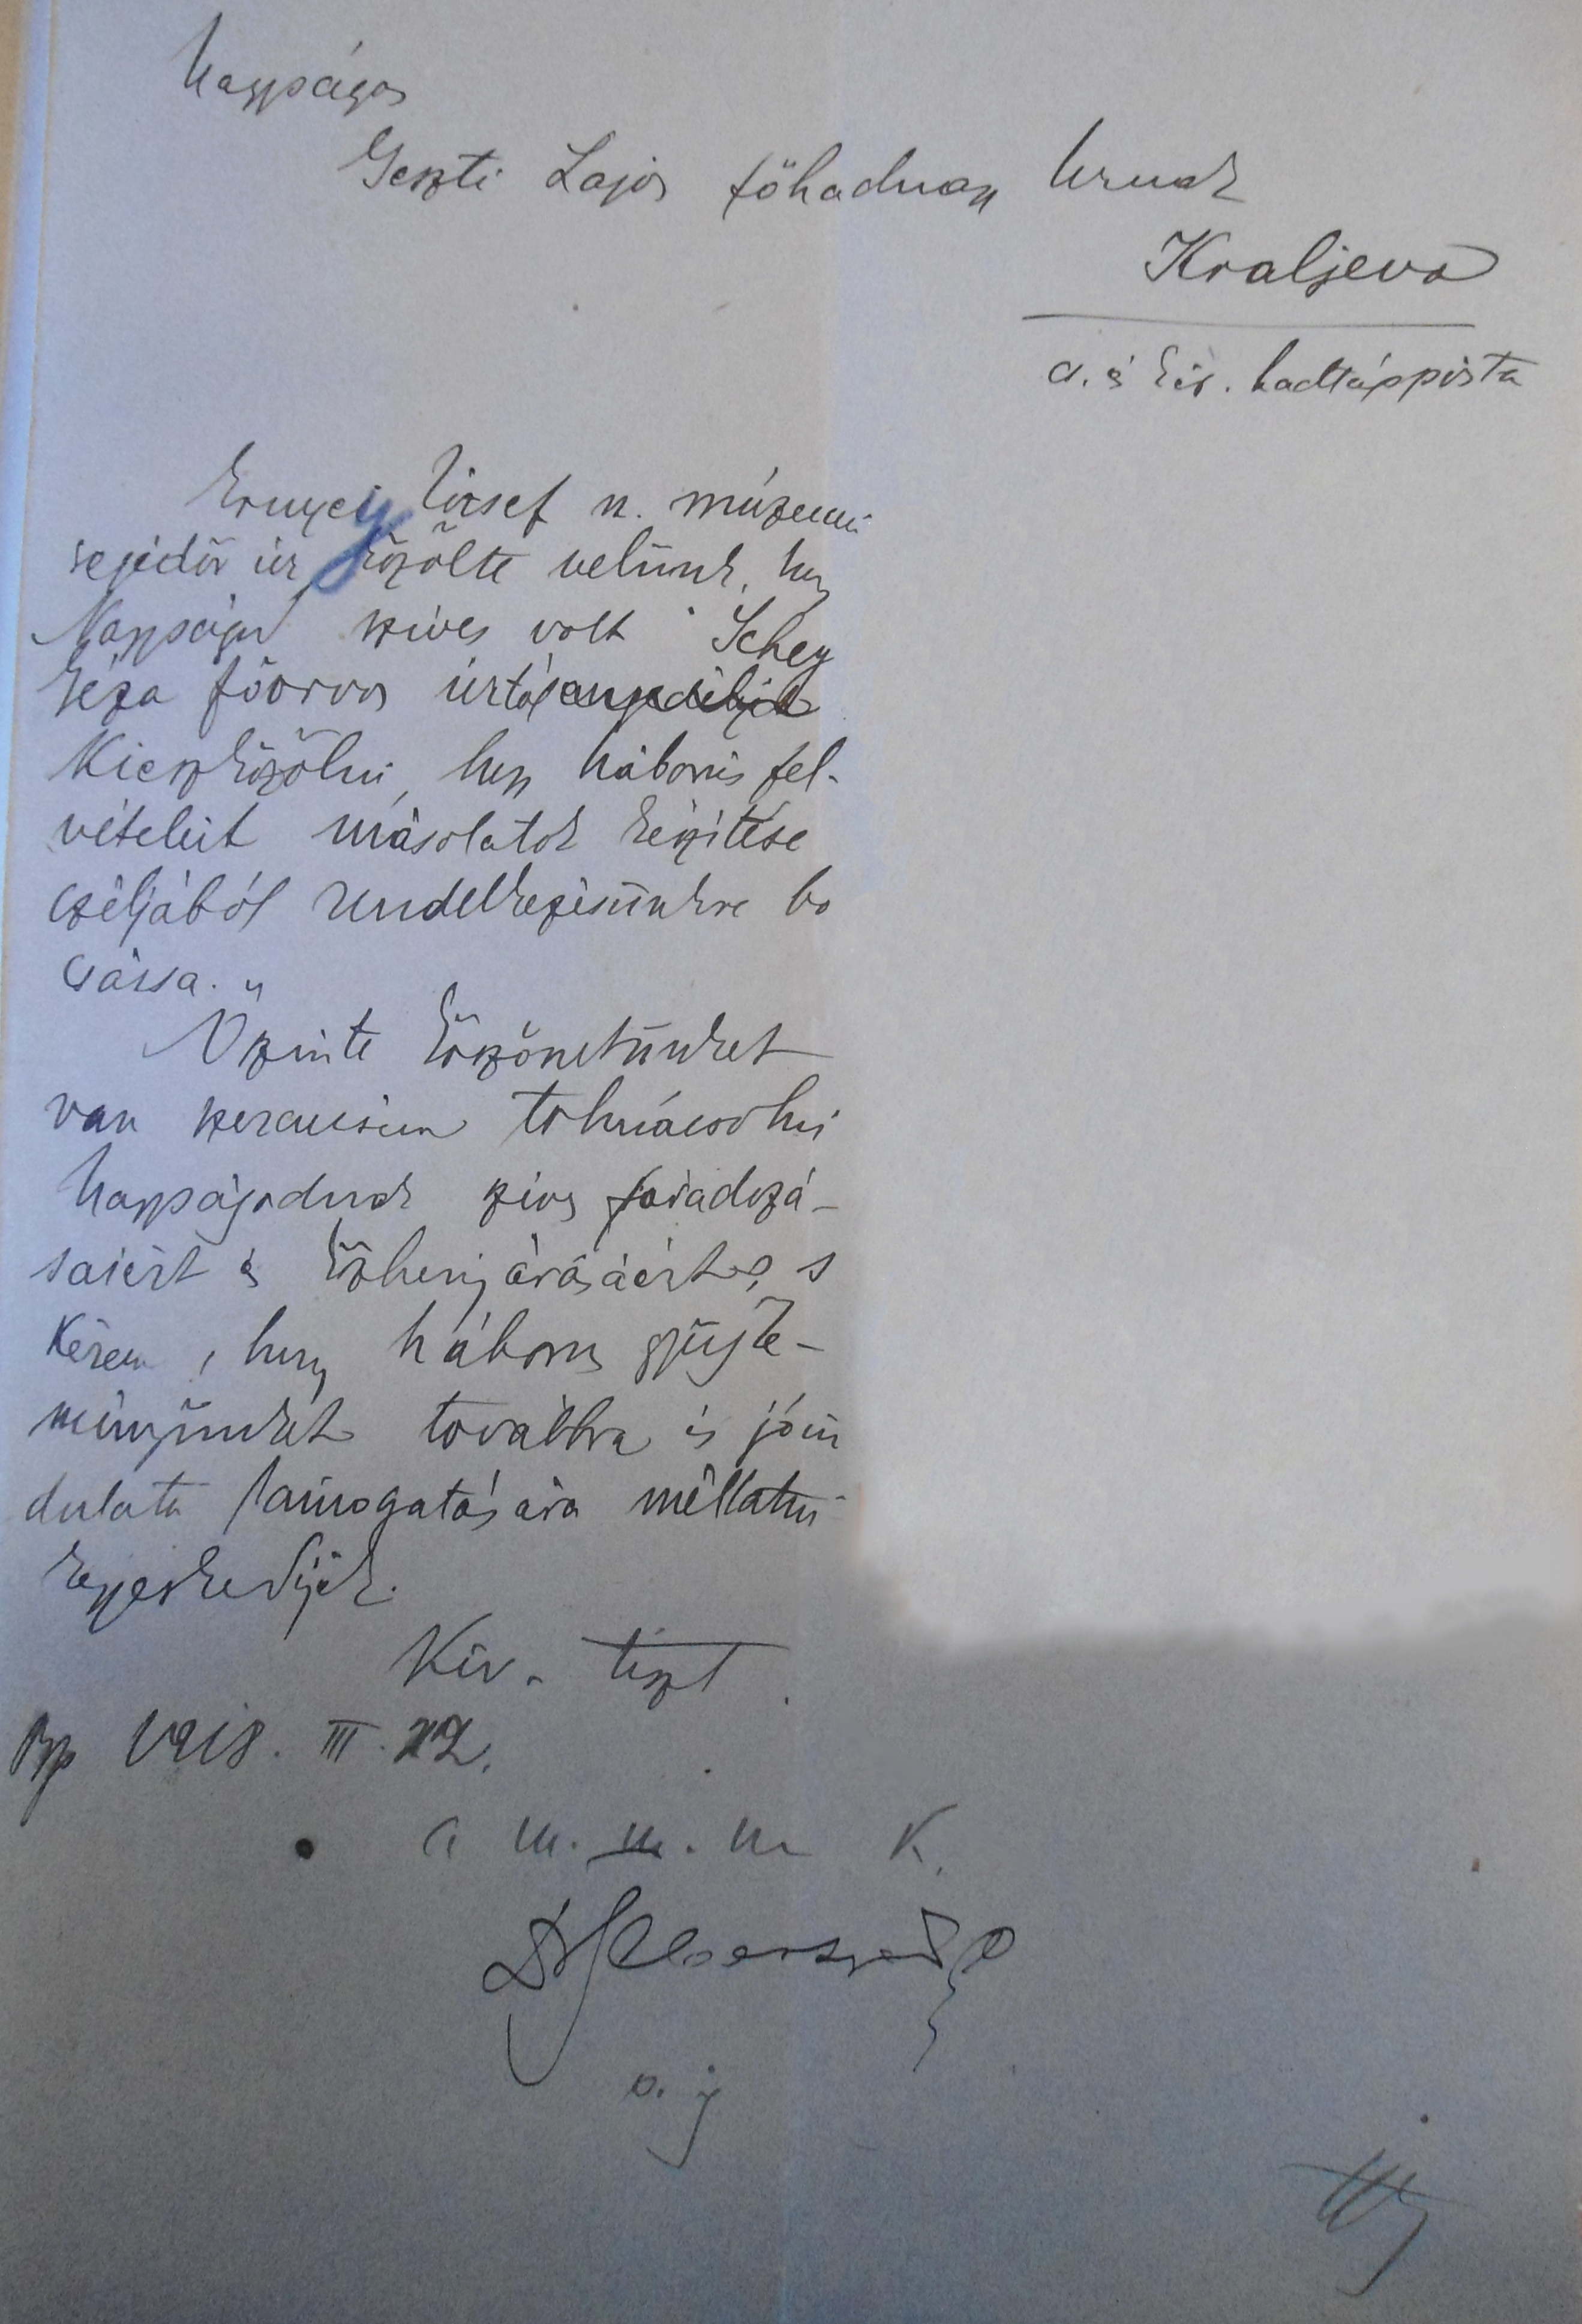 Nagyságos
Geszti Lajos főhadnagy Urnak
Kraljevo
cs. és kir. hadtápposta
Ernyei József n. múzeumi
segédőr úr közölte velünk, hogy
Nagyságod szives volt Schey
Géza főorvos úrtól
kieszközölni, hogy háborús fel-
vételeit másolatok készítése
czéljából rendelkezésünkre bo
csássa.
Őszinte köszönetünket
van szerencsém tolmácsolni
Nagyságodnak szives fáradozá-
saiért és közbenjárásáért, s
kérem, hogy háborus gyüjte-
ményünket továbbra is jóin
dulatu támogatására méltatni
kegyeskedjék.
Kiv. tiszt
Bp 1918. III. 22.
a m. n. m K.
o. ig